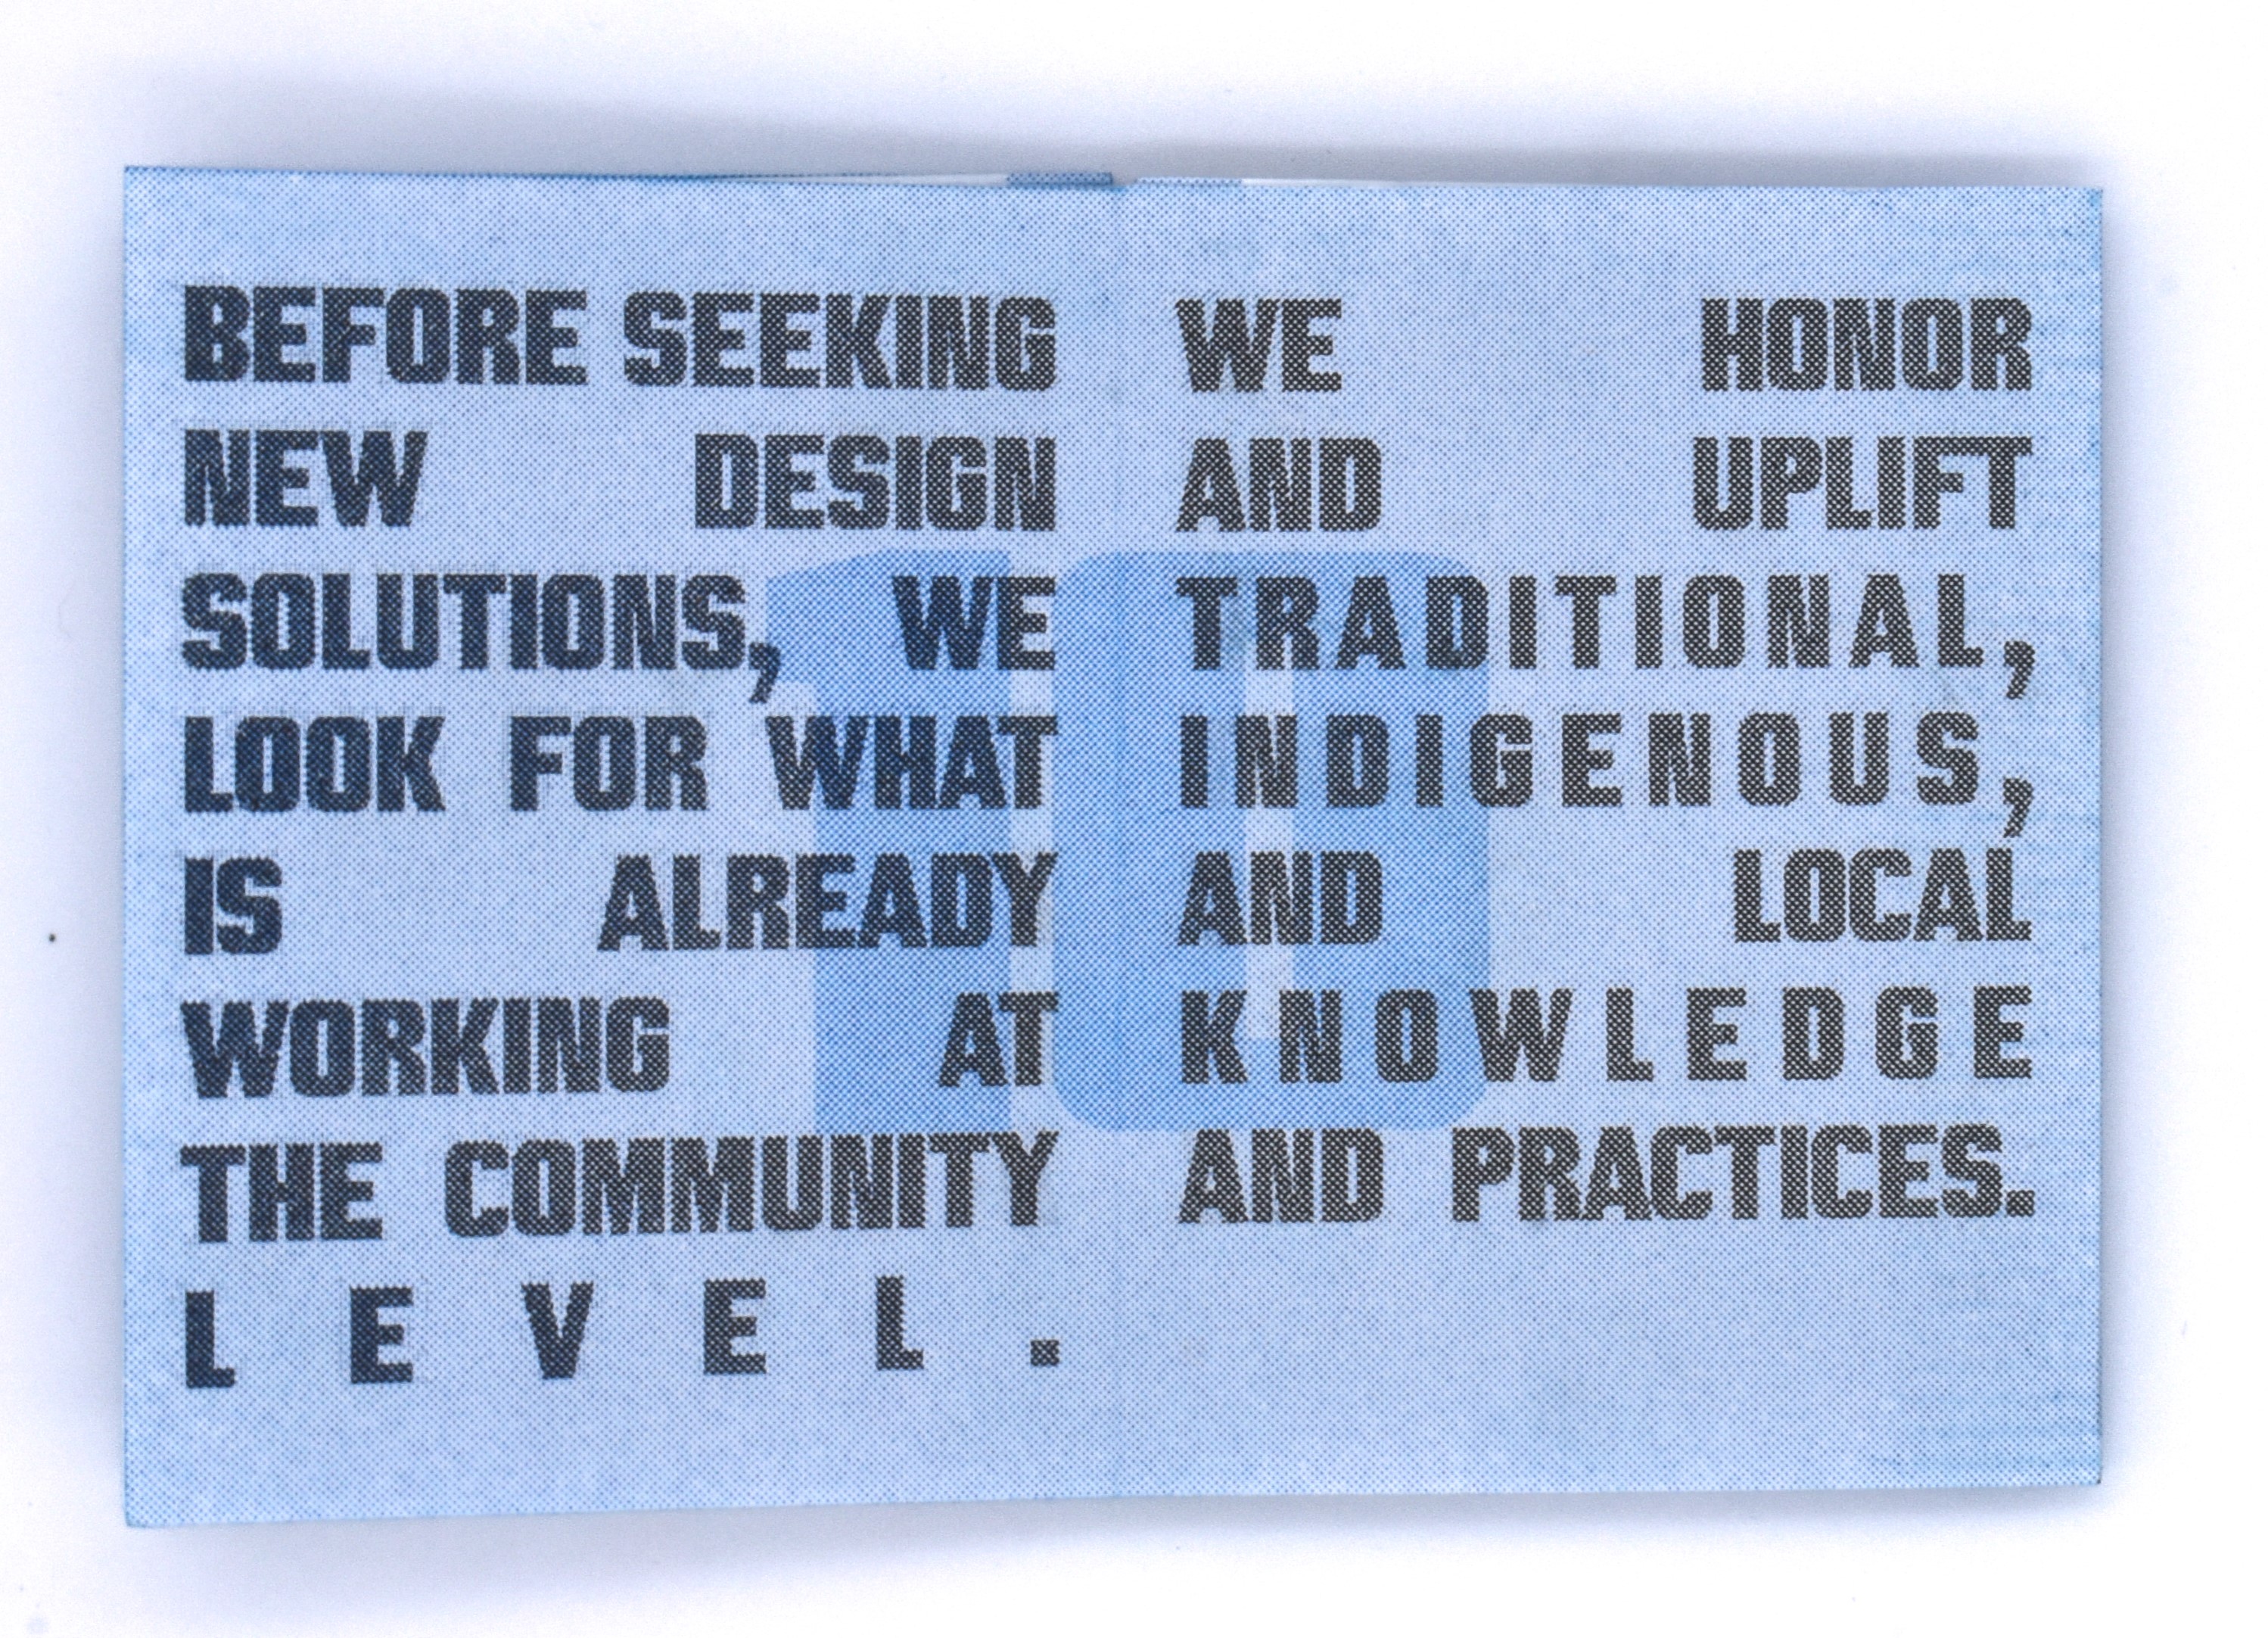 BEFORE SEEKING
NEW DESIGN
SOLUTIONS, WE
LOOK FOR WHAT
IS ALREADY
WORKING AT
THE COMMUNITY
LEVEL.
WE HONOR
AND UPLIFT
TRADITIONAL,
INDIGENOUS,
AND LOCAL
KNOWLEDGE
AND PRACTICES.
10